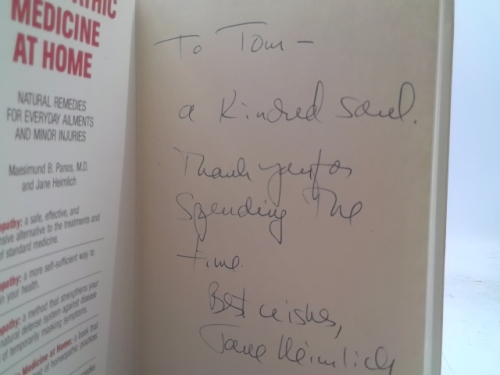 MEDICINE
AT HOME
NATURAL REMEDIES
FOR EVERYDAY AILMENTS
AND MINOR INJURIES
Maesimund B. Panos, M.D.
and Jane Heimlich
opathy: a safe, effective, and
nsive alternative to the treatments and
of standard medicine.
opathy: a more self-sufficient way to
in your health.
opathy: a method that strengthens your
natural defense system against disease
of temporarily masking symptoms.
Medicine at Home: a book that
of homeopathic practices
To Tom –
a Kindred Soul.
Thank you for
Spending The
time
Best wishes,
Jane Heimlich